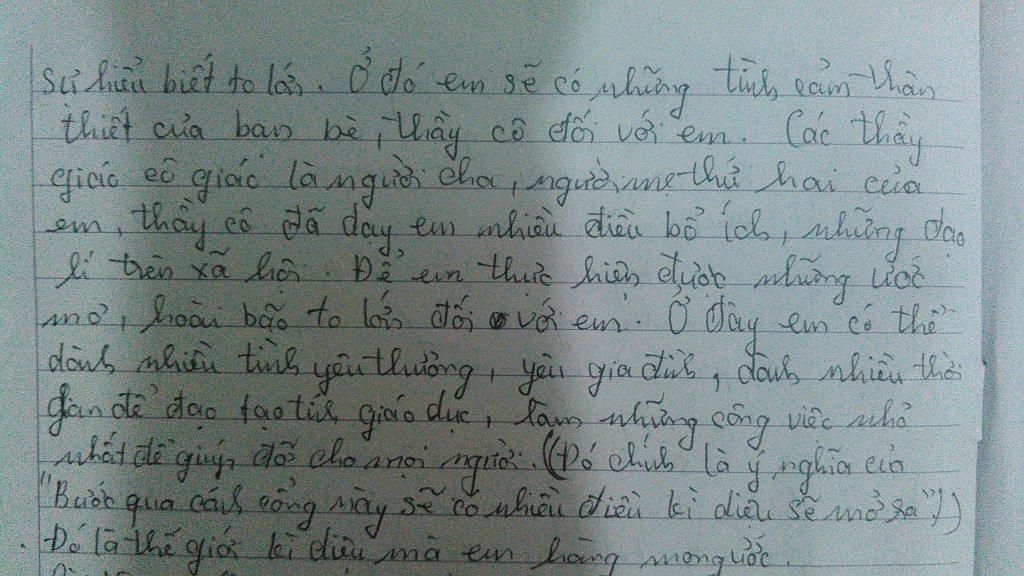 sự hiểu biết to lớn. Ở đó em sẽ có những tình cảm thân
thiết của bạn bè, thầy cô đối với em. Các thầy
giáo cô giáo là người cha, người mẹ thứ hai của
em, thầy cô đã dạy em nhiều điều bổ ích, những đạo
lí trên xã hội. Để em thực hiện được những ước
mơ, hoài bão to lớn đối với em. Ở đây em có thể
dành nhiều tình yêu thương, yêu gia đình, dành nhiều thời
gian để đạo tạo tính giáo dục, làm những công việc nhỏ
nhất để giúp đỡ cho mọi người. (Đó chính là ý nghĩa của
"Bước qua cánh cổng này sẽ có nhiều điều kì diệu sẽ mở ra")
Đó là thế giới kì diệu mà em hằng mong ước.